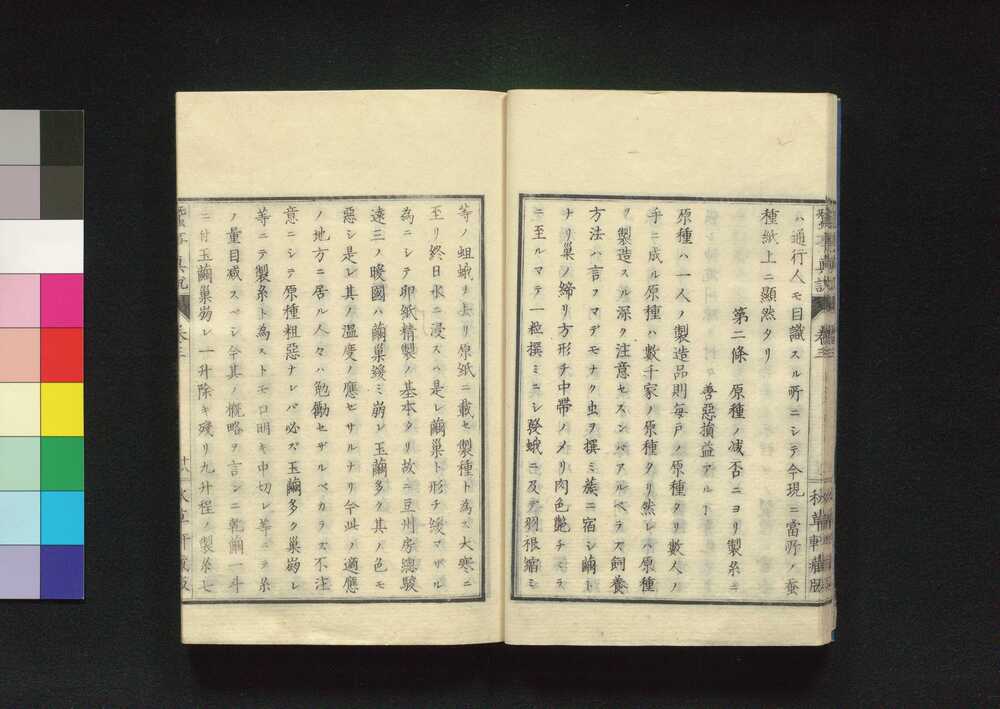 ハ通行人モ目識スル所ニシテ今現ニ當所ノ蚕
種紙上ニ顯然タリ
第二條 原種ノ减否ニヨリ製糸ニ
善惡損益アルㄱ
原種ハ一人ノ製造品則每戸ノ原種タリ數人ノ
手ニ成ル原種ハ數千家ノ原種タリ然レハ原種
ヲ製造スル深ク注意セスンバアルベラズ飼養
方法ハ言フマデモナク虫ヲ撰ミ蔟ニ宿シ繭ト
ナリ巢ノ締リ方形チ中帶ノメリ肉色艶チヾラ
ニ至ルマテ一粒撰ミニシ發蛾ニ及デ羽根縮ミ
等ノ蛆蛾ヲ去リ原紙ニ載セ製種ト為ス大寒ニ
至リ終日水ニ浸スハ是レ繭巢ト形チ緩マザル
為ニシテ卵紙精製ノ基本タリ故ニ豆州房總駿
遠三ノ暖國ハ繭巢緩ミ崩レ玉繭多ク其ノ色モ
惡シ是レ其ノ温度ノ應セサルナリ今此ノ適應
ノ地方ニ居ル人々ハ勉勵セザルベカラズ不注
意ニシテ原種粗惡ナレバ必ズ玉繭多ク巢崩レ
等ニテ製糸ト為ストモ口明キ中切レ等ニテ糸
ノ量目减スベシ今其ノ概略ヲ言ンニ乾繭一斗
ニ付玉繭巢崩レ一升除キ殘リ九升程ノ製糸七